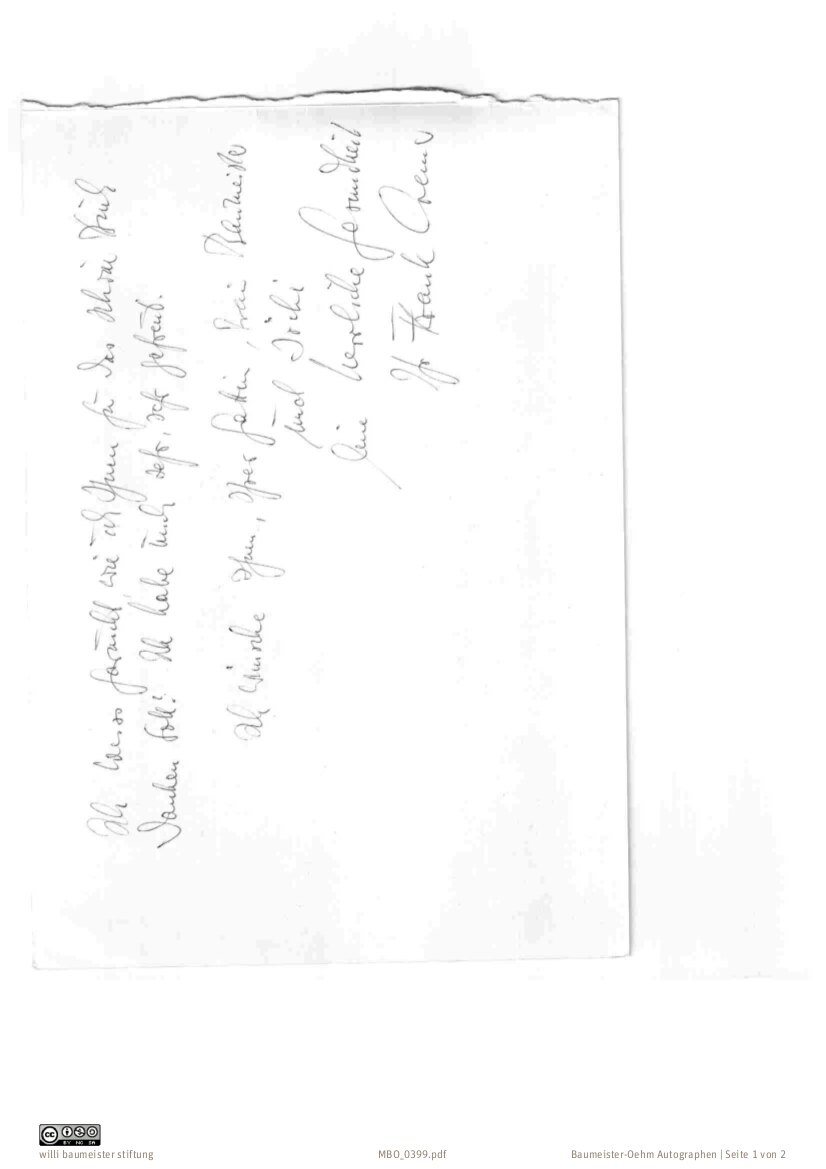 Ich weiss garnicht, wie ich Ihnen für das schöne Buch
danken soll! Ich habe mich sehr, sehr gefreut.
Ich wünsche Ihnen, Ihrer Gattin, Frau Baumeister
und
eine herrliche Gesundheit
Ihr Frank
willi baumeister stiftung
MBO_0399.pdf
Baumeister-Oehm Autographen | Seite 1 von 2
CC BY NC SA